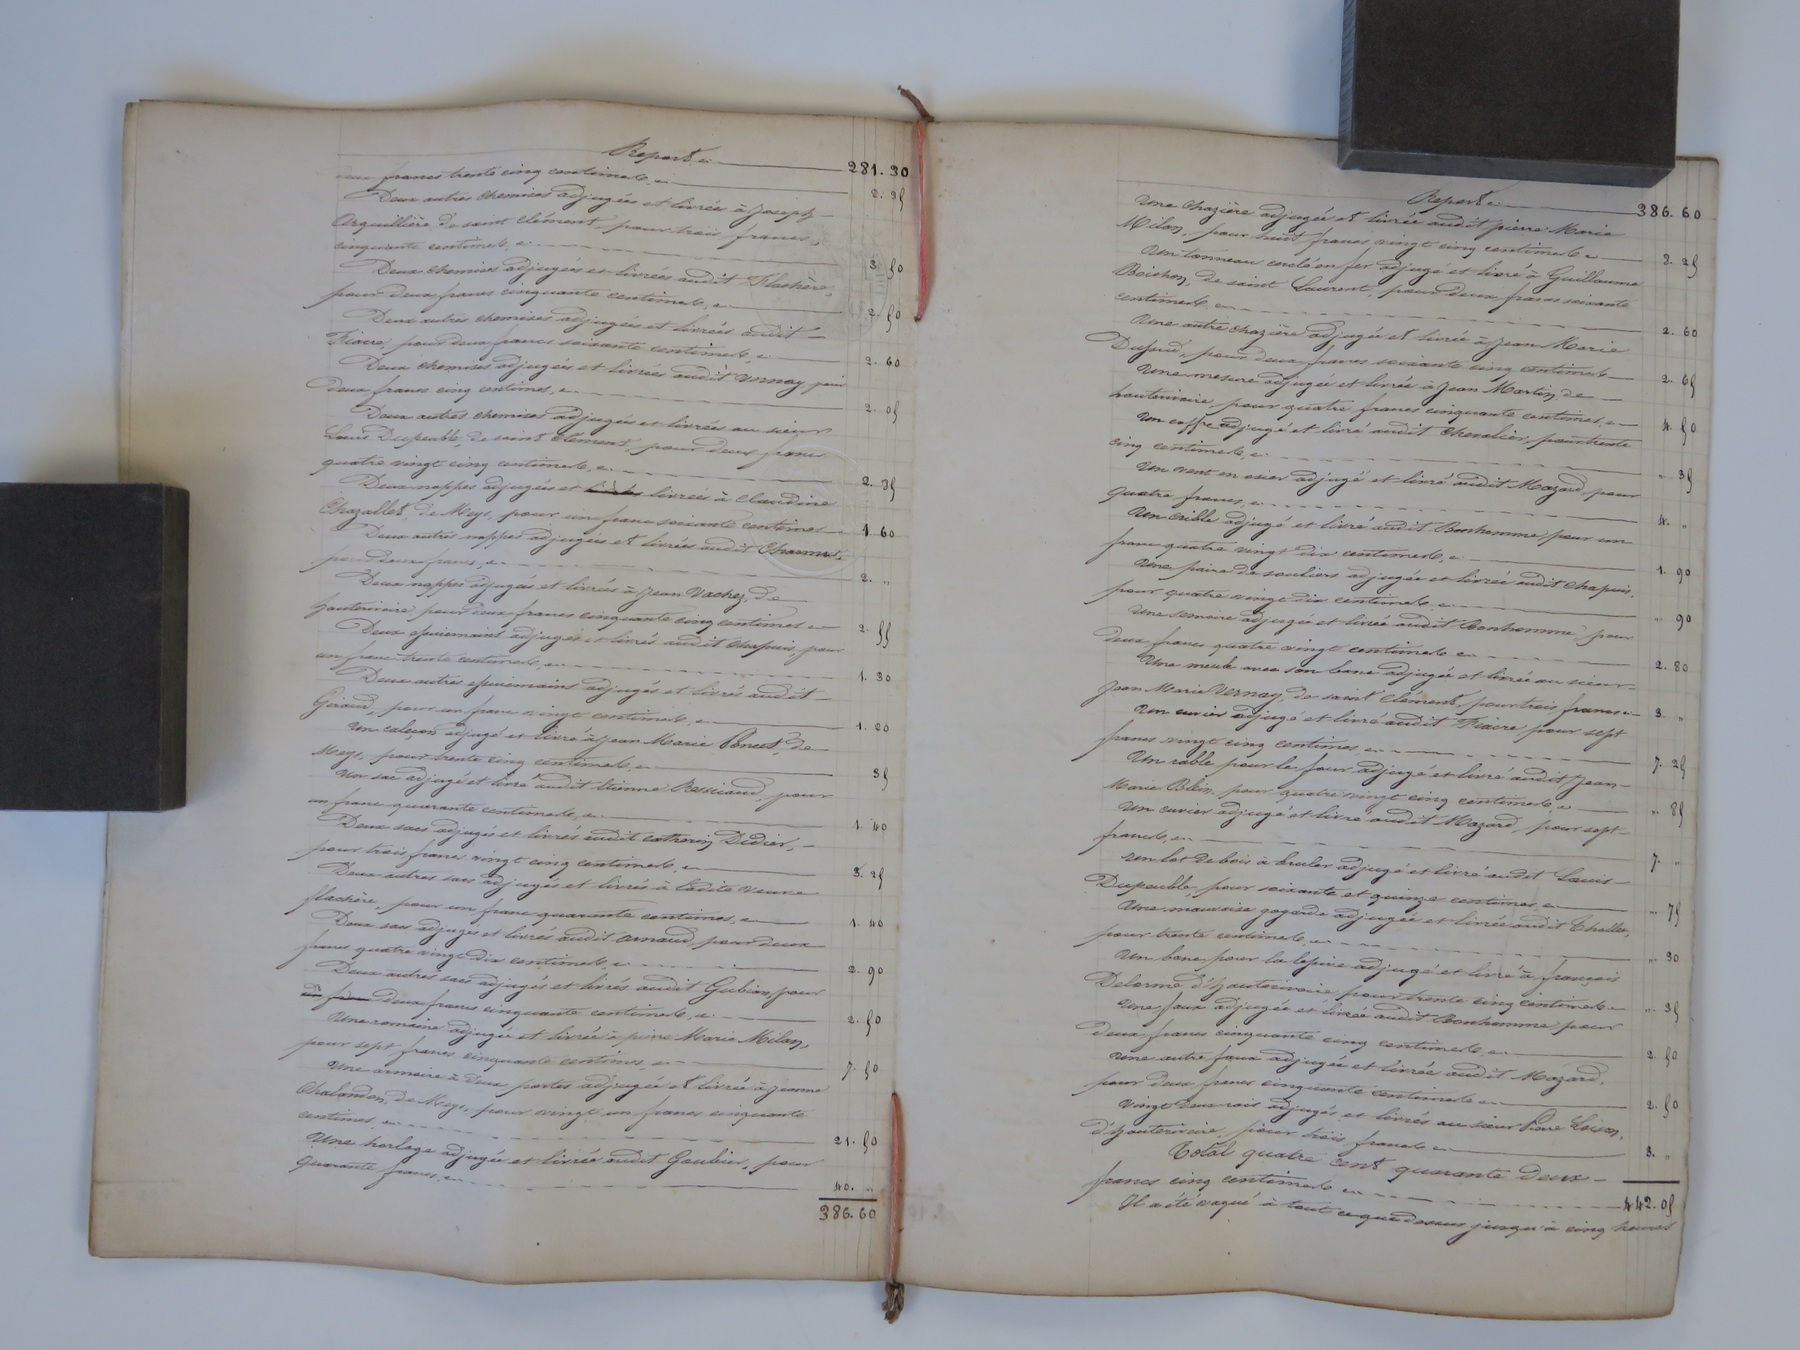 Report 281.30
francs trente cinq centimes 2.35
Deux autres chemises adjugées et livrées à Joseph
Arquillière de saint Clément, pour trois francs
cinquante centimes 3.50
Deux chemises adjugées et livrées audit Flachère,
pour deux francs cinquante centimes 2.50
Deux autres chemises adjugées et livrées audit
Fiacre, pour deux francs soixante centimes 2.60
Deux chemises adjugées et livrées audit Vernay pour
deux francs cinq centimes 2.05
Deux autres chemises adjugées et livrées au sieur
Louis Dupeuble, de saint Clément, pour deux francs
quatre vingt cinq centimes
Deux nappes adjugées et livrées à Claudine
Chazallet, de Meys, pour un franc soixante centimes 1.60
Deux autres nappes adjugées et livrées audit
pour deux francs 2. "
Deux nappes adjugées et livrées à Jean Vachez, de
hauterivoire, pour deux francs cinquante cinq centimes 2.55
Deux essuiemains adjugés et livrés audit Chapuis, pour
un franc trente centimes 1.30
Deux autres essuiemains adjugés et livrés audit
Giraud, pour un franc vingt centimes 1.20
Un caleçon adjugé et livré à Jean Marie Poncet, de
Meys, pour trente cinq centimes 35
Un sac adjugé et livré audit Etienne pour
un franc quarante centimes 1.40
Deux sacs adjugés et livrés audit Catherin Didier,
pour trois francs vingt cinq centimes 3.25
Deux autres sacs adjugés et livrés à ladite veuve
flachère, pour un franc quarante centimes 1.40
Deux sacs adjugés et livrés audit Arnaud, pour deux
francs quatre vingt dix centimes 2.90
Deux autres sacs adjugés et livrés audit Gubian, pour
deux francs cinquante centimes 2.50
Une romaine adjugée et livrée à pierre Marie Milan,
pour sept francs cinquante centimes 7.50
Une armoire à deux portes adjugée et livrée à Jeanne
Chalandon, de Meys, pour vingt un francs cinquante
centimes 21.50
Une horloge adjugée et livrée audit Goubier, pour
quarante francs 40. "
386.60
Report 386.60
Une chazière adjugée et livrée audit pierre Marie
Milan, pour huit francs vingt cinq centimes
Un tonneau cerclé en fer adjugé et livré à Guillaume
Boichon, de saint Laurent, pour deux francs soixante
centimes 2.60
Une autre chazière adjugée et livrée à Jean Marie
pour deux francs soixante cinq centimes 2.65
Une mesure adjugée et livrée à Jean Martin, de
hauterivoire, pour quatre francs cinquante centimes 4.50
Un coffre adjugé et livré audit Chevalier, pour trente
cinq centimes " 35
Un vent en osier adjugé et livré audit Mazard, pour
quatre francs 4. "
Un crible adjugé et livré audit Bonhomme pour un
franc quatre vingt dix centimes 1.90
Une paire de souliers adjugée et livrée audit Chapuis,
pour quatre vingt dix centimes " 90
Une semoire adjugée et livrée audit Bonhomme, pour
deux francs quatre vingt centimes 2.80
Une meule avec son banc adjugée et livrée au sieur
Jean Marie Vernay, de saint Clément, pour trois francs 3. "
Un cuvier adjugé et livré audit Fiacre, pour sept
francs vingt cinq centimes 7.25
Un rable pour le four adjugé et livré audit Jean
Marie Blein, pour quatre vingt cinq centimes " 85
Un cuvier adjugé et livré audit Mazard, pour sept
francs 7. "
Un lot de bois à bruler adjugé et livré audit Louis
Dupeuble, pour soixante et quinze centimes " 75
Une mauvaise adjugée et livrée audit
pour trente centimes " 30
Un banc pour la lessive adjugé et livré à françois
Delorme d'hauterivoire pour trente cinq centimes " 35
Une faux adjugée et livrée audit Bonhomme pour
deux francs cinquante cinq centimes 2.50
Une autre faux adjugée et livrée audit Mazard,
pour deux francs cinquante centimes 2.50
Vingt deux adjugés et livrés au sieur Pierre
d'hauterivoire, pour trois francs 3. "
Total quatre cent quarante deux
francs cinq centimes 442.05
Il a été vaqué à tout ce que dessus jusqu'à cinq heures